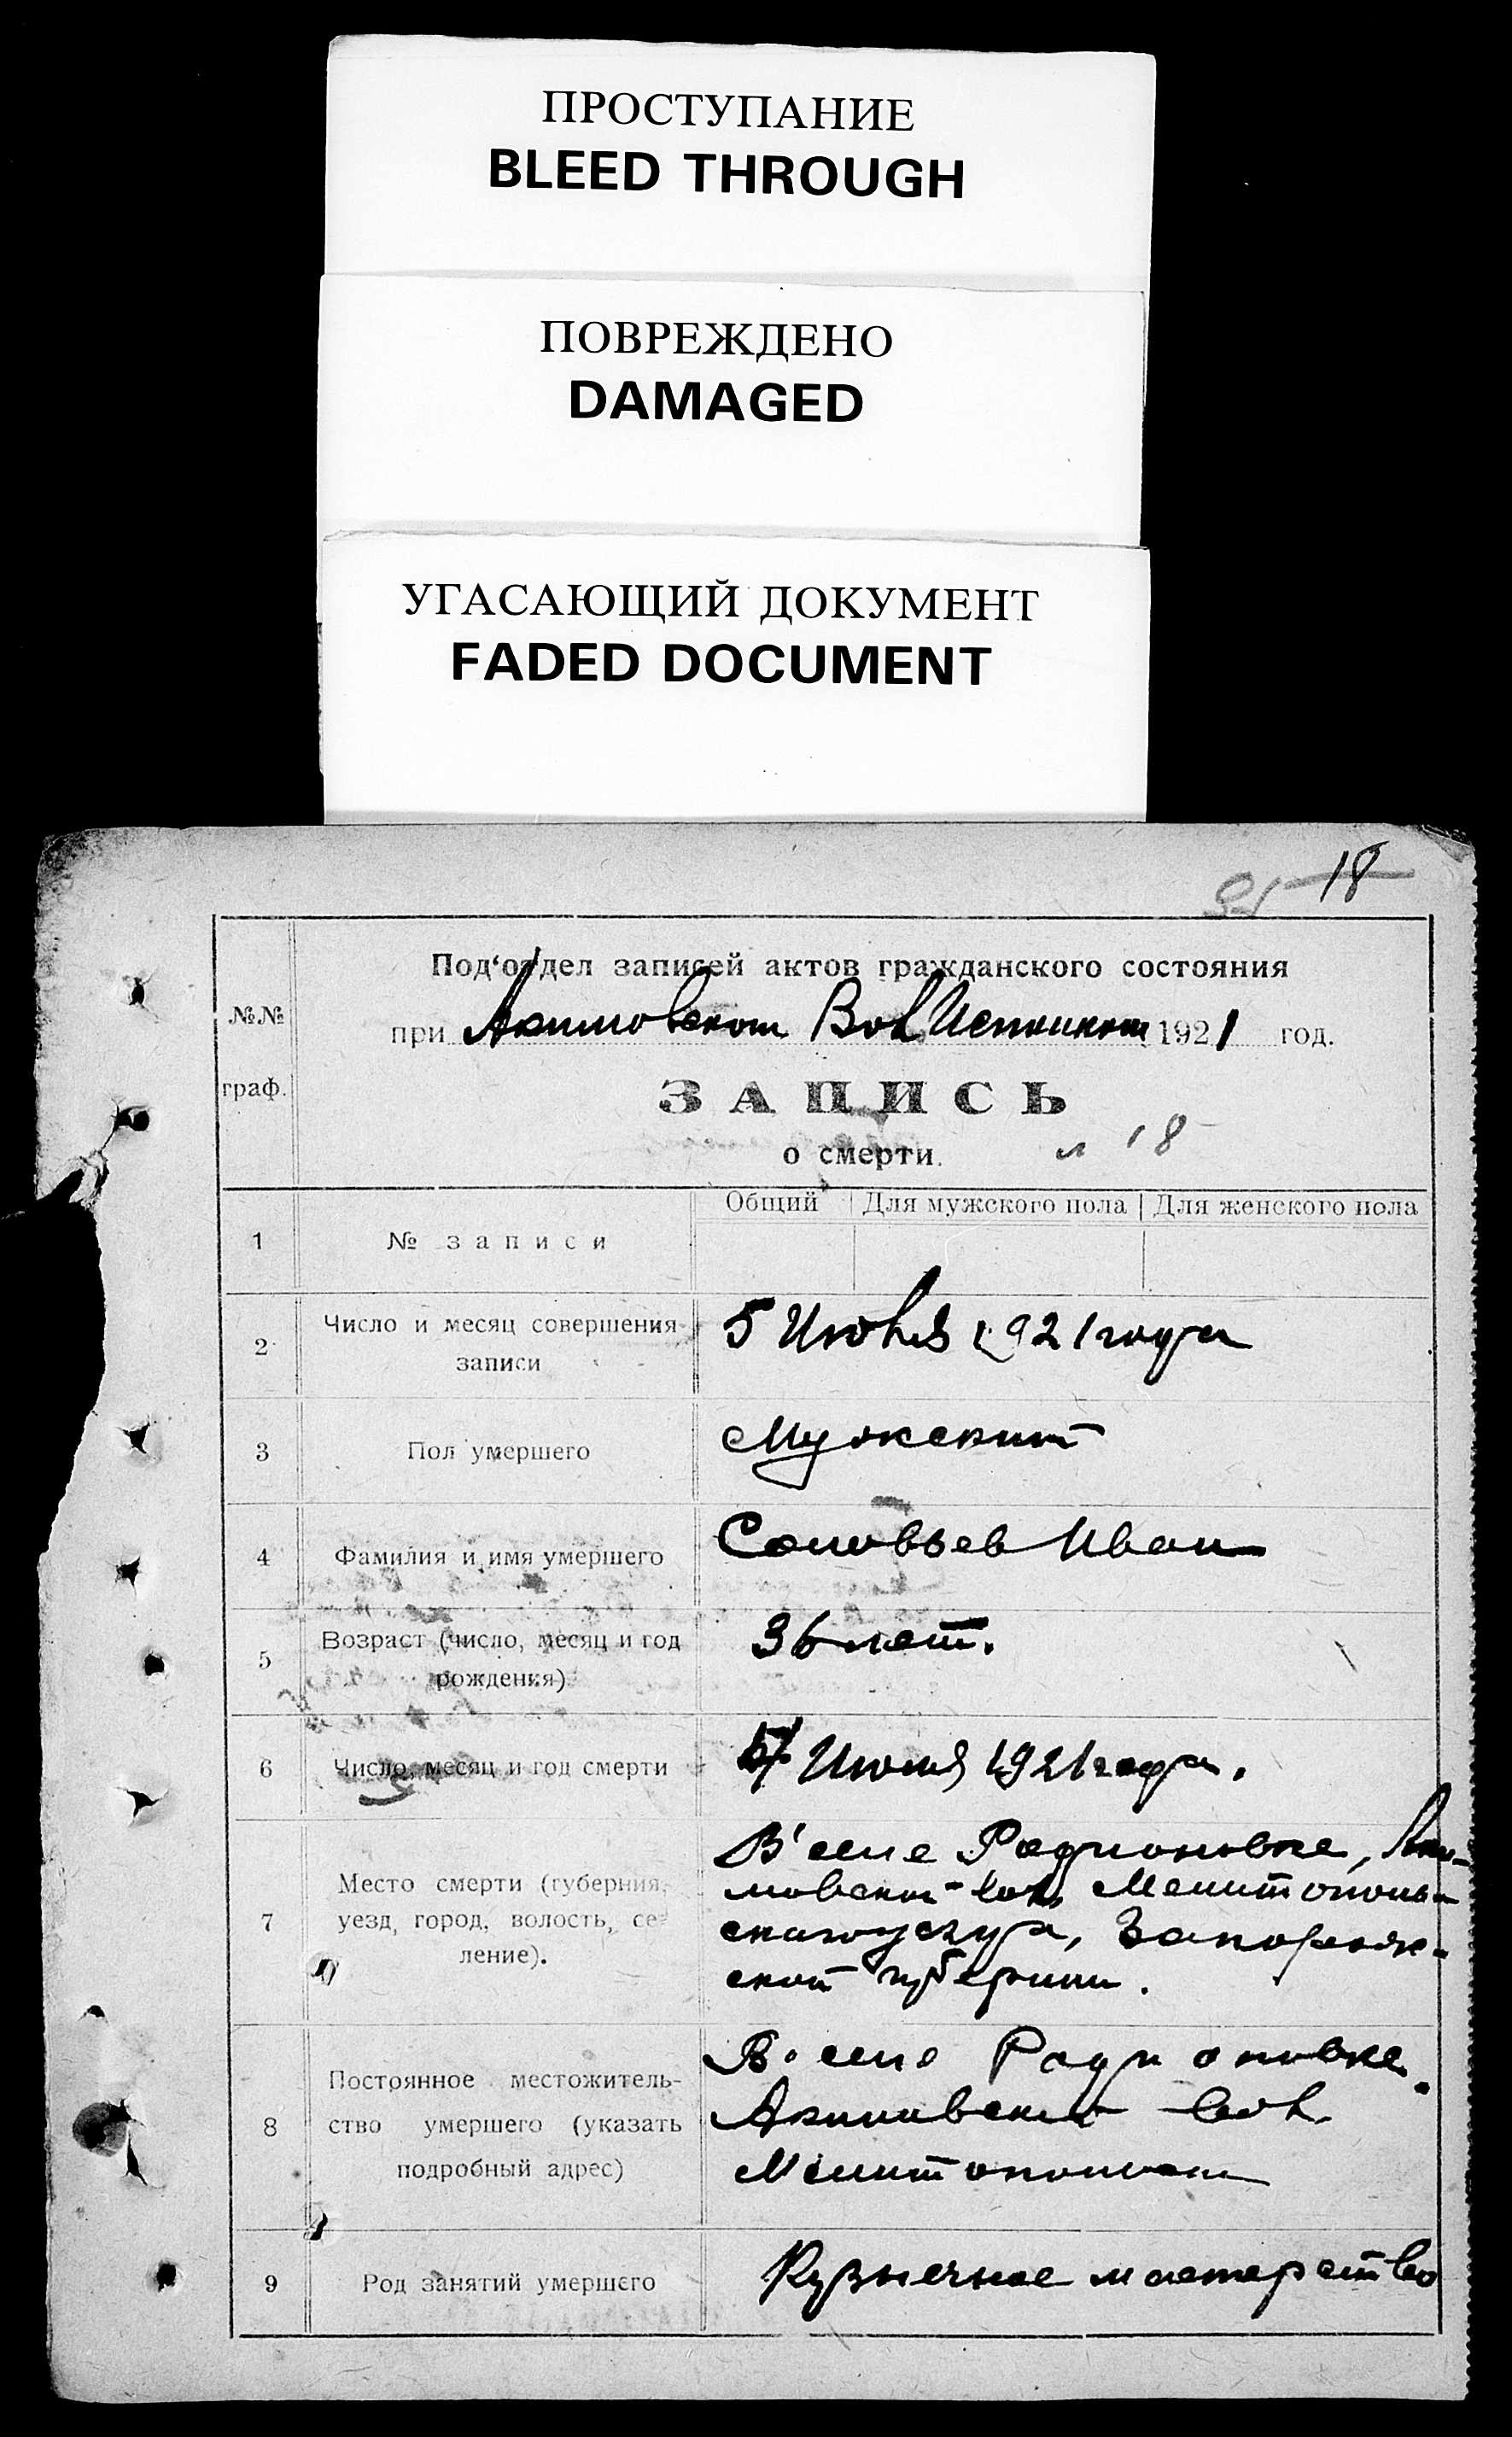 ПРОСТУПАНИЕ
BLEED THROUGH
ПОВРЕЖДЕНО
DAMAGED
УГАСАЮЩИЙ ДОКУМЕНТ
FADED DOCUMENT
18
№№
граф.
Под‘отдел записей актов гражданского состояния
при Акимовском Вол 1921 год.
ЗАПИСЬ
о смерти.
18
Общий Для мужского пола Для женского пола
1 № записи
2 Число и месяц совершения записи
5 Июля 1921 года
3 Пол умершего
Мужской
4 Фамилия и имя умершего
Соловьев Иван
5 Возраст (число, месяц и год
рождения)
36 лет.
6 Число, месяц и год смерти
Июля 1921 года.
7 Место смерти (губерния,
уезд, город, волость, се-
ление).
В селе Родионовке, Аки-
мовской вол. Мелитополь-
ского уезда, Запорож-
ской губернии.
8 Постоянное местожитель-
ство умершего (указать
подробный адрес)
В селе Родионовке
Акимовской вол.
9 Род занятий умершего
Кузнечное мастерство